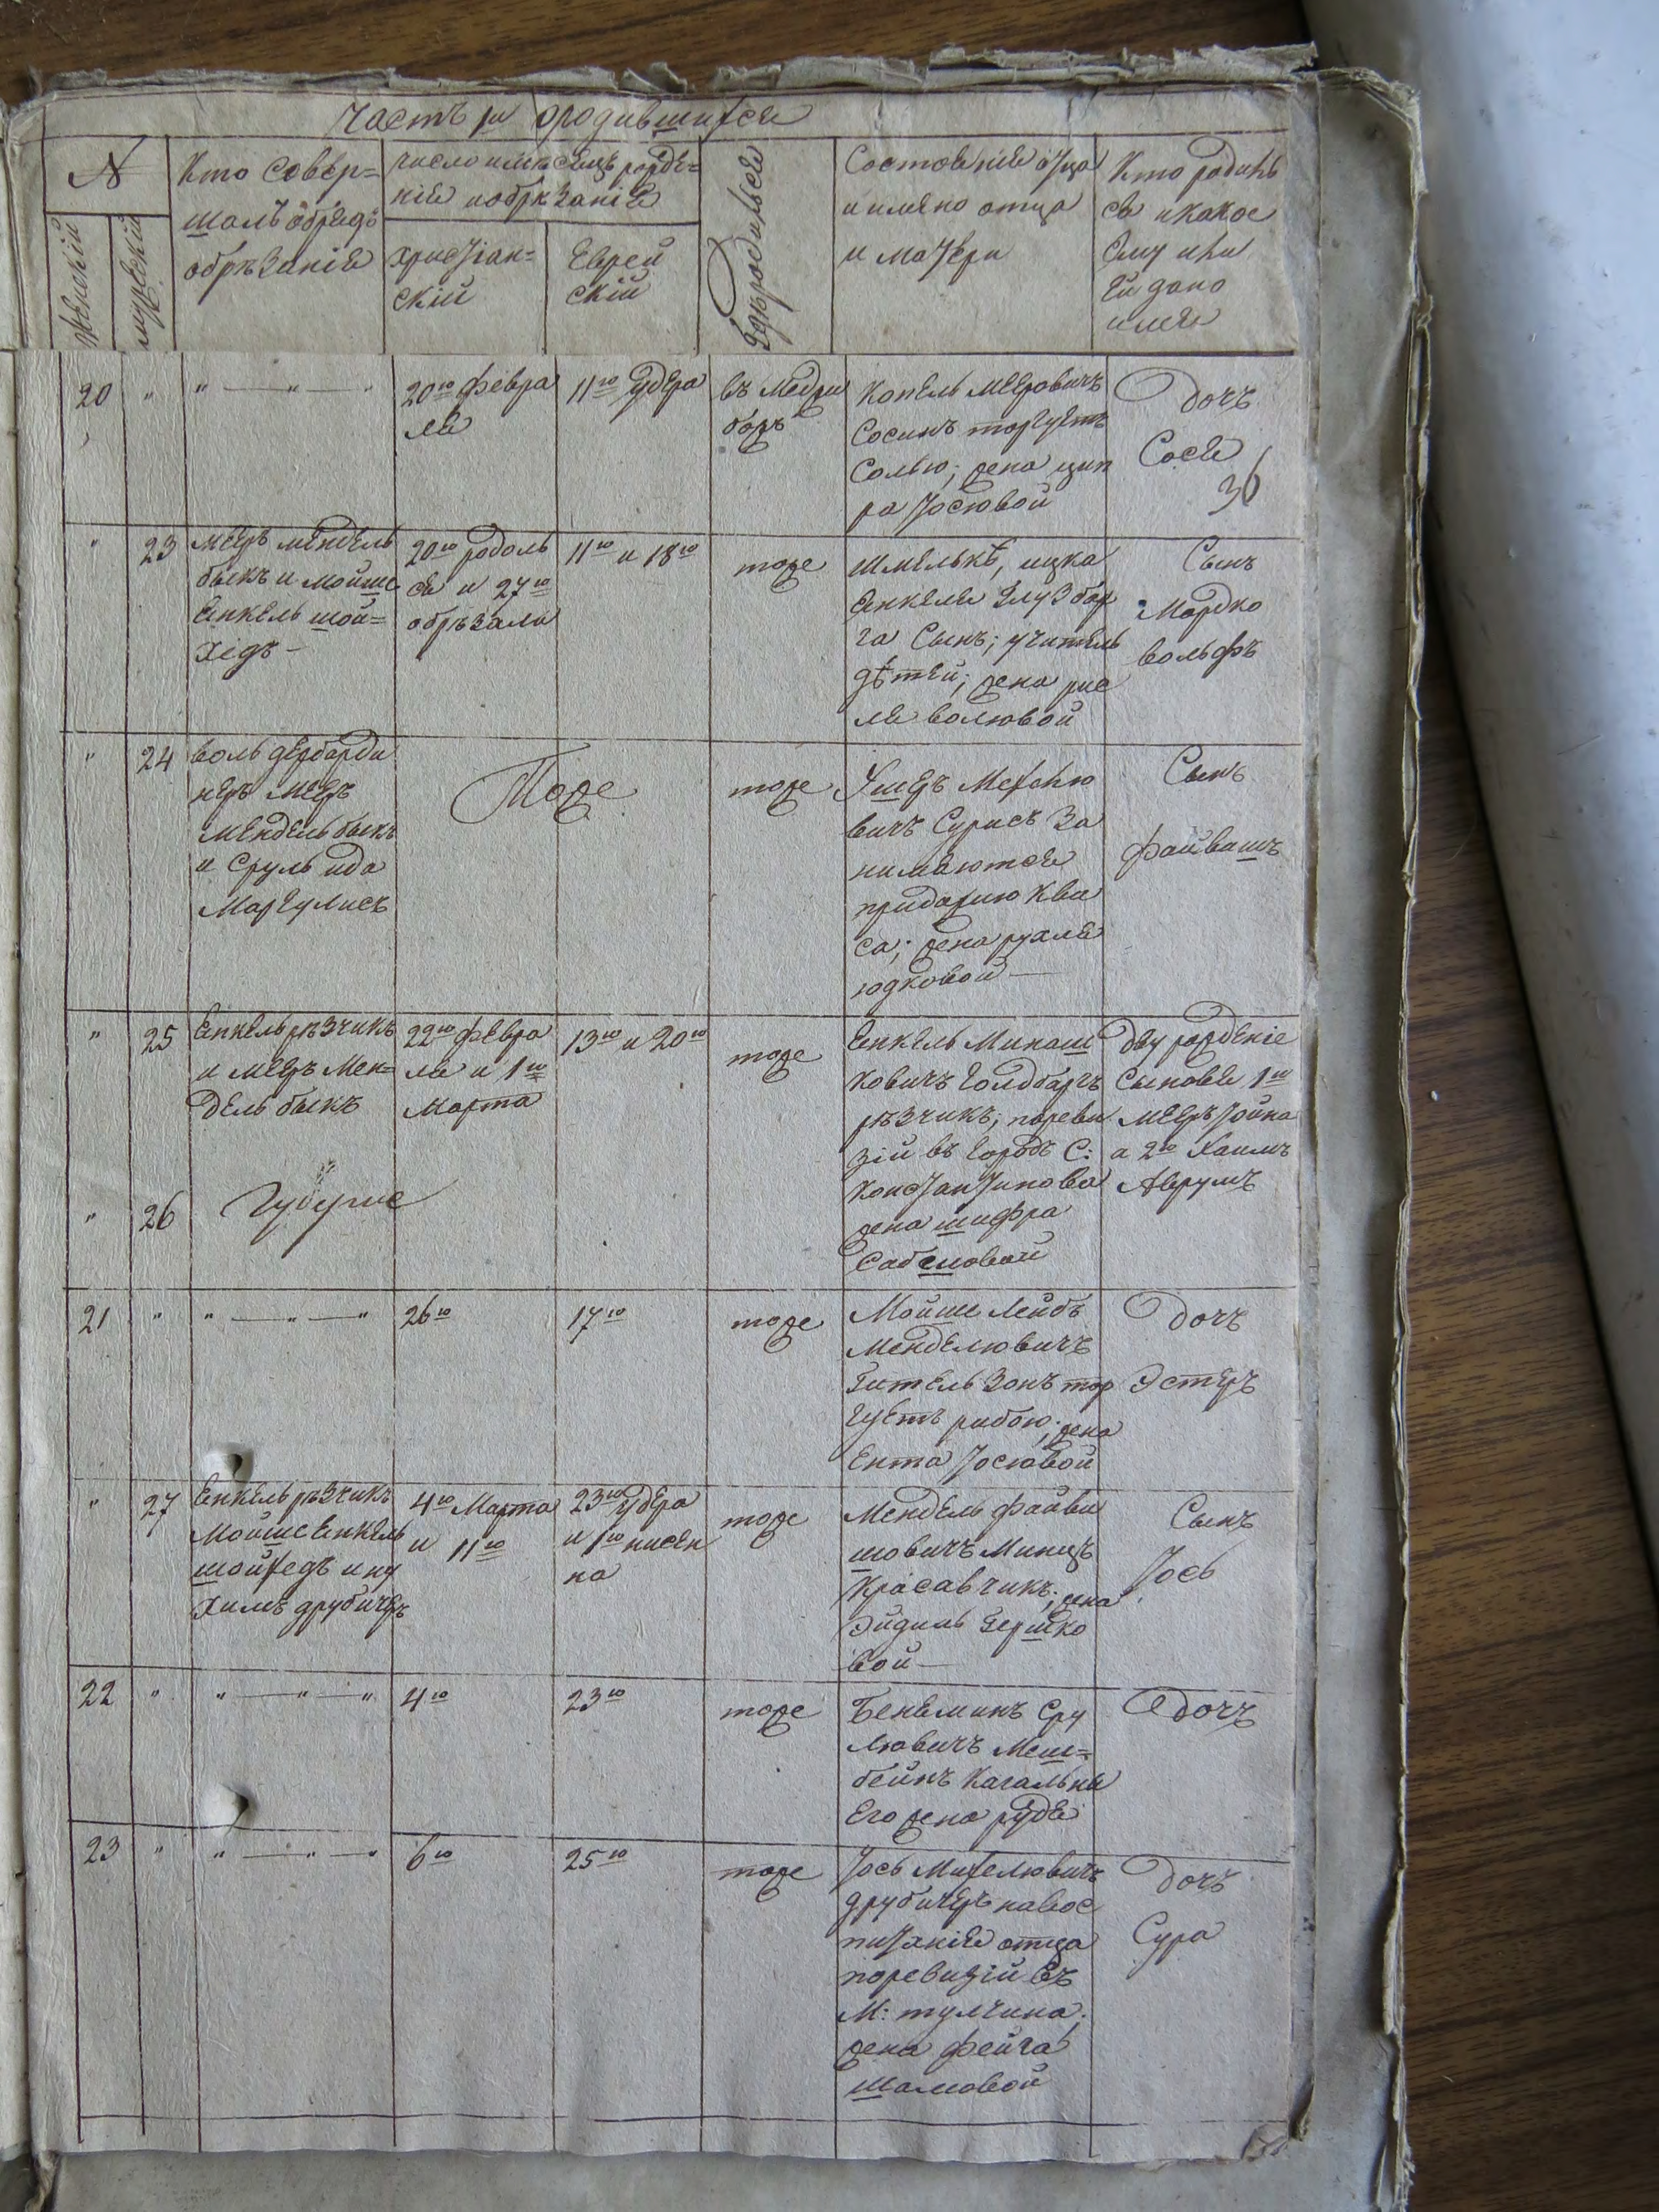 Часть 1я о родившихся
№
Женскій
Мужескій
Кто совер=
шалъ обрядъ
обрѣзанія
Число и мѣсяцъ рожде=
нія и обрѣзанія
Христіан=
скій
Еврей
скій
Гдѣ родился
Состояніе отца
и имяно отца
и матери
Кто родилъ
ся и какое
ему или
ей дано
имя
20 " " — " — "
20го февра
ля
11го удера
въ Меджи
божѣ
Копель Мееровичъ
Сосинъ торгуетъ
Солью; жена цип
ра Іосіовой
Дочъ
Сося
36
" 23
Мееръ мендель
быкъ и Мойше
Янкель шой=
хідъ —
20го родоль
ся и 27го
обрѣзали
11го и 18го
тоже
Шмелькѣ, ицка
Янкеля
га Сынъ; учитель
дѣтей; жена рис
ля волювой
Сынъ
Мордко
вольфъ
" 24
воль дербарди
неръ Мееръ
Мендель быкъ
и Сруль ида
Маргулисъ
Тоже
тоже
Ушеръ Мехлю
вичъ Сурисъ За
нимаютея
придажю Ква
са; жена рухля
юдковой —
Сынъ
файвишъ
" 25
Янкель рѣзчикъ
и Мееръ Мен=
дель быкъ
22го февра
ля и 1го
Марта
13го и 20го
тоже
Янкель Минаш
ковичъ Голдбаргъ
рѣзчикъ; пореви
зій въ Городѣ С:
Константинова
жена шифра
Сабсиовой
Дву рожденіе
Сыновя 1го
Мееръ Іойна
а 2го Хаимъ
Аврумъ
" 26
21 " " — " — "
26го
17го
тоже
Мойше Лейбъ
Менделювичъ
Гительзонъ тор
гуетъ рибою; жена
Ента Іосіовой
Дочъ
Эстеръ
" 27
Янкель рѣзчикъ
Мойше Янкель
шойхедъ и ну
химъ друбичеръ
4го Марта
и 11го
23го удера
и 1го нисен
на
тоже
Мендель файви
шовичъ Минцъ
Красавчикъ; жена
Эйдиль Гершко
вой —
Сынъ
Іось
22 " " — " — "
4го
23го
тоже
Беняминъ Сру
лювичъ Меш=
бейнъ Кагальны
Его жена рудя
Дочъ
23 " " — " — "
6го
25го
тоже
Іось Михелювичъ
друбичеръ на вос
питаніе отца
поревизій въ
М: тулчина;
жена фейга
шамовой
Дочъ
Сура